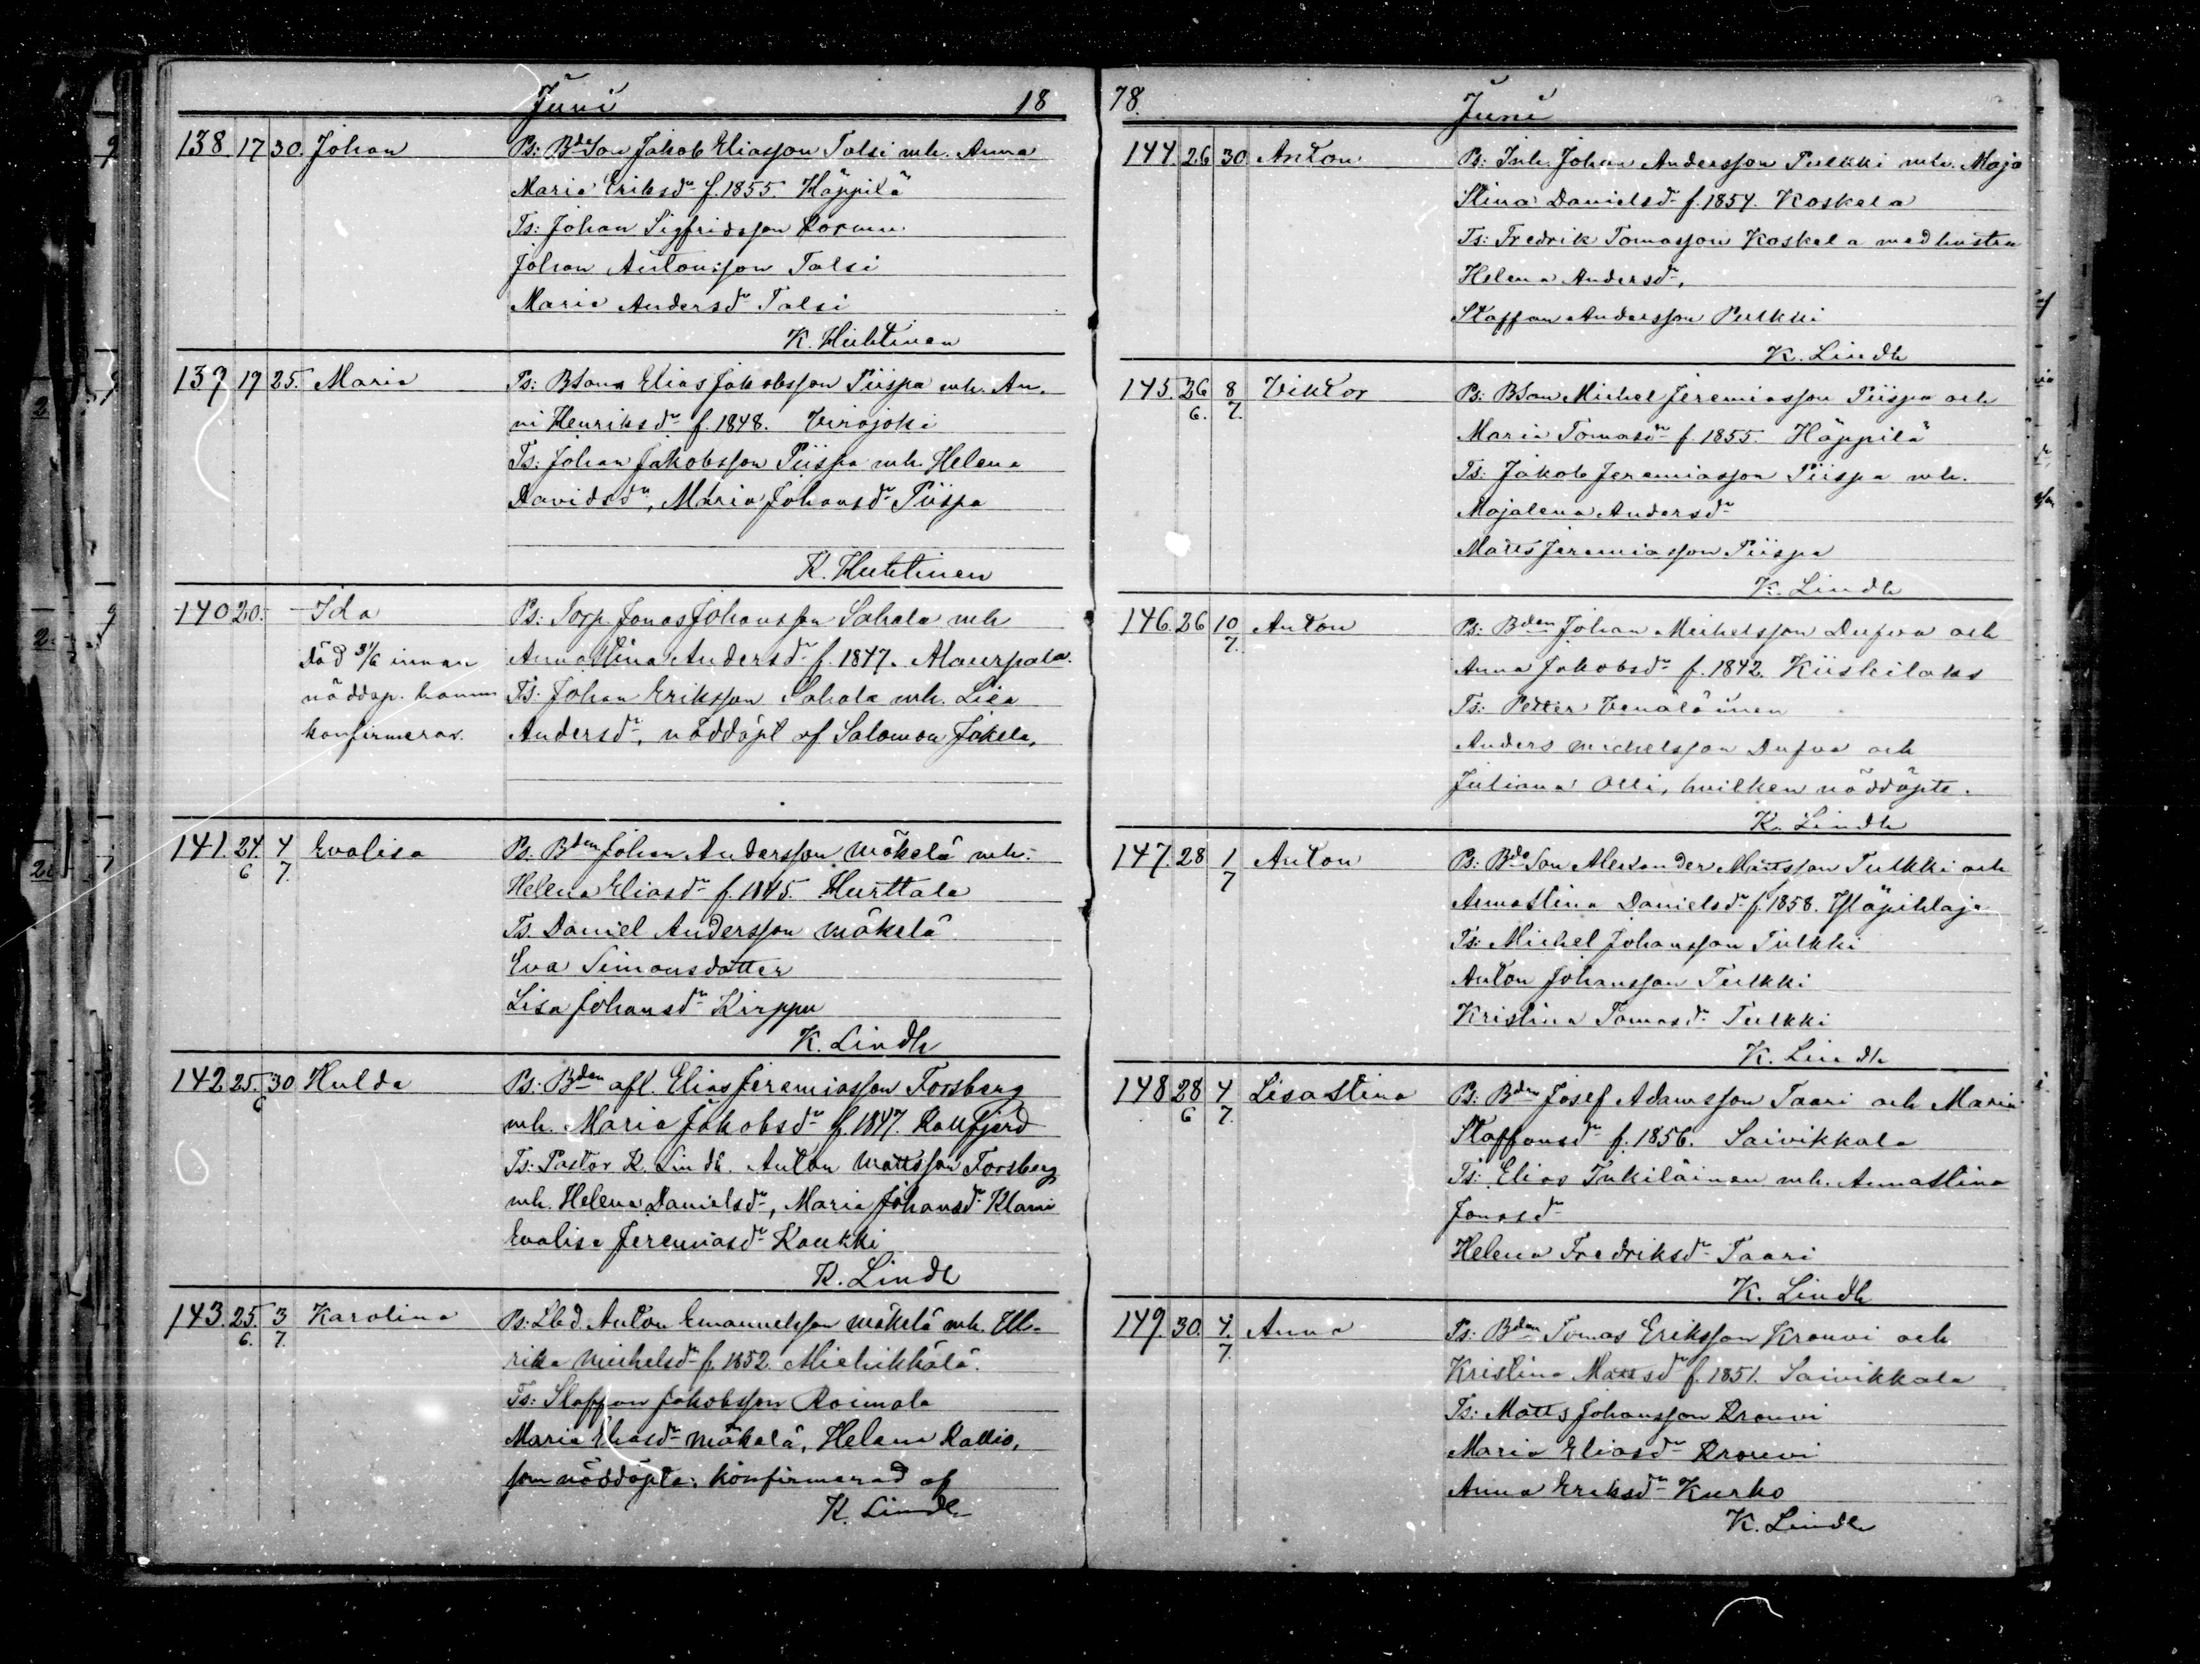 Juni 18
138. 17 30. Johan Ps: Bde Son Jakob Eliasson Talsi mh. Anna
Maria Eriksdr f. 1855. Häppilä
Ts: Johan Sigfridsson
Johan Antonsson Talsi
Maria Andersdr Talsi
K. Huhtinen
139 19 25. Maria Ps: BSon Elias Jakobsson Piispa mh. An-
ni Henriksdr f. 1848. Virojoki
Ts: Johan Jakobsson Piispa mh. Helena
Davidsdr, Maria Johansdr Piispa
K. Huhtinen
140 20. – Ida Ps: Torp. Jonas Johansson Sahala mh
död innan Annastina Andersdr f. 1847. Maurpala.
nöddop. hann Ts: Johan Eriksson Sahala mh. Lisa
konfirmeras. Andersdr, nöddöpt af Salomon Jäkelä,
141. 24. 4 Evalisa Ps. Bden Johan Andersson Mäkelä mh.
6 7. Helena Eliasdr f. 1845. Hurttala
Ts. Daniel Andersson Mäkelä
Eva Simonsdotter
Lisa Johansdr Kirppu
K. Lindh
142 25. 30 Hulda Ps: Bden afl. Elias Jeremiasson Forsberg
6 mh. Maria Jakobsdr f. 1847.
Ts: Pastor K. Lindh. Anton Mattsson Forsberg
mh. Helena Danielsdr, Maria Johansdr Klami
Evalisa Jeremiasdr Koukki
K. Lindh
143. 25. 3 Karolina Ps: Lbd. Anton Emanuelsson Mäkelä mh. Ul-
6. 7. rika Michelsdr f. 1852. Miehikkälä.
Ts: Staffan Jakobsson Raimala
Maria Eliasdr Mäkelä, Helena Kallio,
som nöddöpte; konfirmerad af
K. Lindh
78. Juni
144. 26 30. Anton Ps: Inh. Johan Andersson Pulkki mh. Maja
Stina Danielsdr f. 1854. Koskela
Ts: Fredrik Tomasson Koskela med hustru
Helena Andersdr,
Staffan Andersson Pulkki
K. Lindh
145. 26 8 Viktor Ps: BSon Michel Jeremiasson Piispa och
6. 7. Maria Tomasdr f. 1855. Häppilä
Ts: Jakob Jeremiasson Piispa mh.
Majalena Andersdr
Matts Jeremiasson Piispa
K. Lindh
146. 26 10 Anton Ps: Bden Johan Michelsson Dufva och
7. Anna Jakobsdr f. 1842. Kiiskilaks
Ts: Petter Venäläinen
Anders Michelsson Dufva och
Juliana Olli, hvilken nöddöpte.
K. Lindh
147. 28 1 Anton Ps: Bde Son Alexander Mattsson Tulkki och
7 Annastina Danielsdr f. 1858.
Ts: Michel Johansson Tulkki
Anton Johansson Tulkki
Kristina Tomasdr Tulkki
K. Lindh
148 28 4 Lisastina Ps: Bden Josef Adamsson Taari och Maria
6 7. Staffansdr f. 1856. Saivikkala
Ts: Elias Inkiläinen mh. Annastina
Jonasdr
Helena Fredriksdr Taari
K. Lindh
149. 30. 4. Anna Ps: Bden Tomas Eriksson Krouvi och
7. Kristina Mattsdr f. 1851. Saivikkala
Ts: Matts Johansson Krouvi
Maria Eliasdr Krouvi
Anna Eriksdr Kurko
K. Lindh